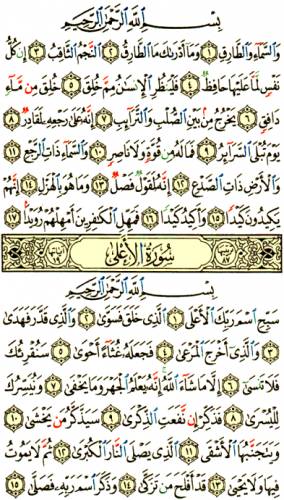 بِسْمِ اللَّهِ الرَّحْمَٰنِ الرَّحِيمِ
وَالسَّمَاءِ وَالطَّارِقِ ١ وَمَا أَدْرَاكَ مَا الطَّارِقُ ٢ النَّجْمُ الثَّاقِبُ ٣ إِن كُلُّ
نَفْسٍ لَّمَّا عَلَيْهَا حَافِظٌ ٤ فَلْيَنظُرِ الْإِنسَانُ مِمَّ خُلِقَ ٥ خُلِقَ مِن مَّاءٍ
دَافِقٍ ٦ يَخْرُجُ مِن بَيْنِ الصُّلْبِ وَالتَّرَائِبِ ٧ إِنَّهُ عَلَىٰ رَجْعِهِ لَقَادِرٌ ٨
يَوْمَ تُبْلَى السَّرَائِرُ ٩ فَمَا لَهُ مِن قُوَّةٍ وَلَا نَاصِرٍ ١٠ وَالسَّمَاءِ ذَاتِ الرَّجْعِ ١١
وَالْأَرْضِ ذَاتِ الصَّدْعِ ١٢ إِنَّهُ لَقَوْلٌ فَصْلٌ ١٣ وَمَا هُوَ بِالْهَزْلِ ١٤ إِنَّهُمْ
يَكِيدُونَ كَيْدًا ١٥ وَأَكِيدُ كَيْدًا ١٦ فَمَهِّلِ الْكَافِرِينَ أَمْهِلْهُمْ رُوَيْدًا ١٧
سُورَةُ الْأَعْلَىٰ
بِسْمِ اللَّهِ الرَّحْمَٰنِ الرَّحِيمِ
سَبِّحِ اسْمَ رَبِّكَ الْأَعْلَى ١ الَّذِي خَلَقَ فَسَوَّىٰ ٢ وَالَّذِي قَدَّرَ فَهَدَىٰ
٣ وَالَّذِي أَخْرَجَ الْمَرْعَىٰ ٤ فَجَعَلَهُ غُثَاءً أَحْوَىٰ ٥ سَنُقْرِئُكَ
فَلَا تَنسَىٰ ٦ إِلَّا مَا شَاءَ اللَّهُ إِنَّهُ يَعْلَمُ الْجَهْرَ وَمَا يَخْفَىٰ ٧ وَنُيَسِّرُكَ
لِلْيُسْرَىٰ ٨ فَذَكِّرْ إِن نَّفَعَتِ الذِّكْرَىٰ ٩ سَيَذَّكَّرُ مَن يَخْشَىٰ ١٠
وَيَتَجَنَّبُهَا الْأَشْقَى ١١ الَّذِي يَصْلَى النَّارَ الْكُبْرَىٰ ١٢ ثُمَّ لَا يَمُوتُ
فِيهَا وَلَا يَحْيَىٰ ١٣ قَدْ أَفْلَحَ مَن تَزَكَّىٰ ١٤ وَذَكَرَ اسْمَ رَبِّهِ فَصَلَّىٰ ١٥